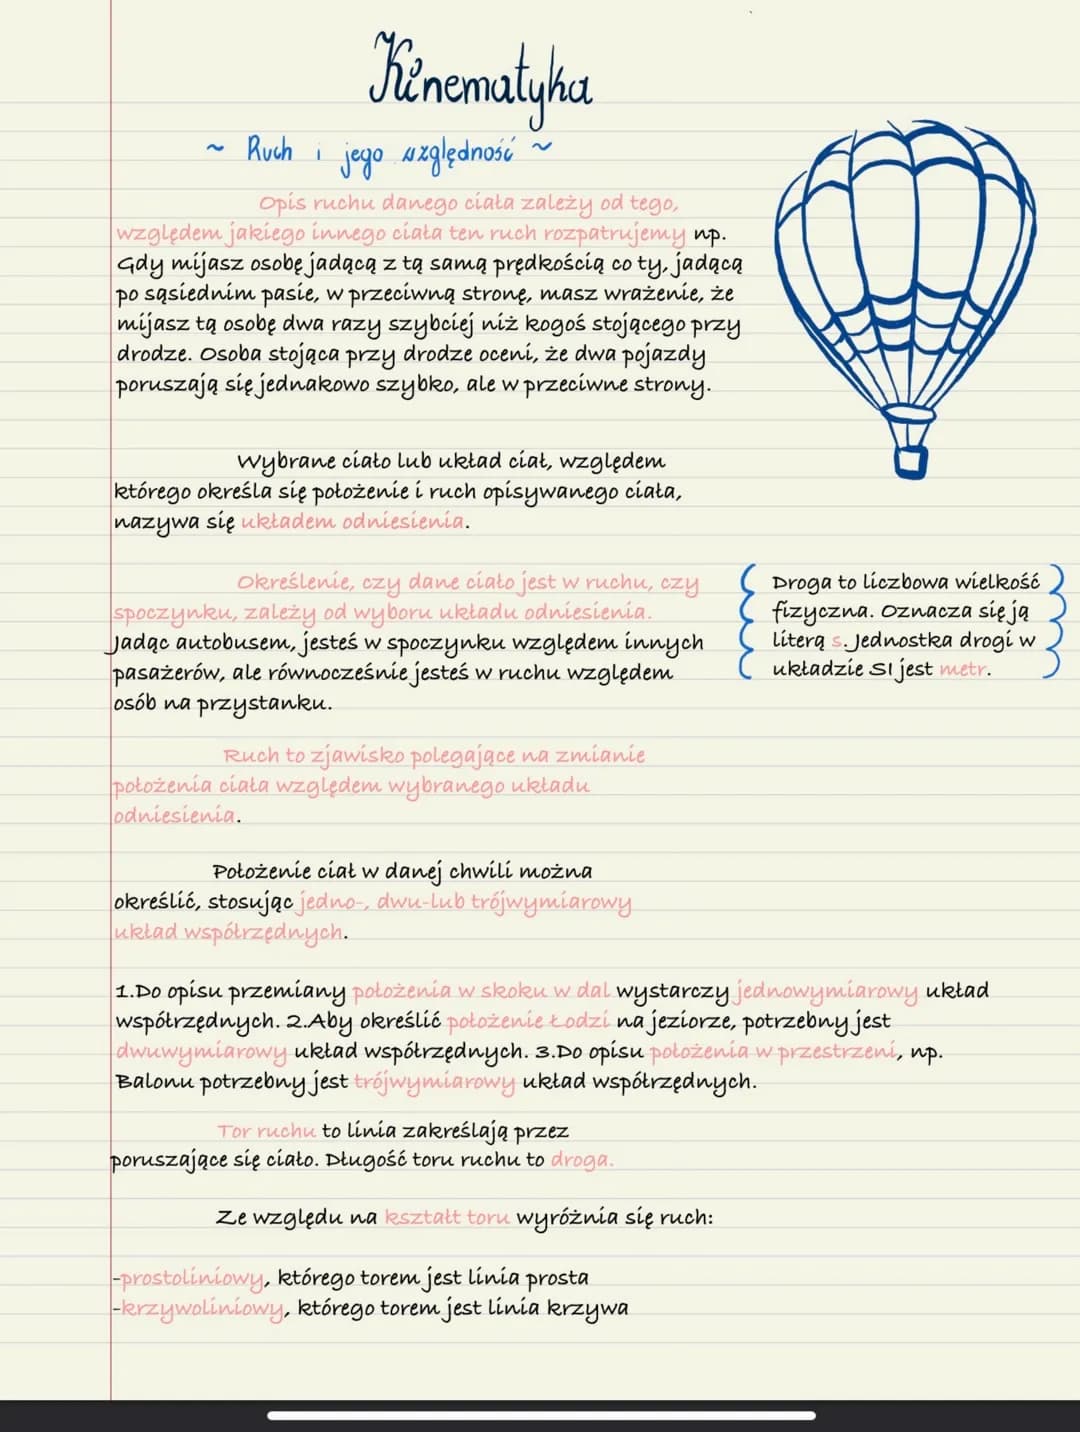 Kinematyka
~ Ruch i jego względność ~
Opis ruchu danego ciała zależy od tego,
względem jakiego innego ciała ten ruch rozpatrujemy np.
Gdy mijasz osobę jadącą z tą samą prędkością co ty, jadącą
po sąsiednim pasie, w przeciwną stronę, masz wrażenie, że
mijasz tą osobę dwa razy szybciej niż kogoś stojącego przy
drodze. Osoba stojąca przy drodze oceni, że dwa pojazdy
poruszają się jednakowo szybko, ale w przeciwne strony.
Wybrane ciało lub układ ciał, względem
którego określa się położenie i ruch opisywanego ciała,
nazywa się układem odniesienia.
Określenie, czy dane ciało jest w ruchu, czy
spoczynku, zależy od wyboru układu odniesienia.
Jadąc autobusem, jesteś w spoczynku względem innych
pasażerów, ale równocześnie jesteś w ruchu względem
osób na przystanku.
Droga to liczbowa wielkość
fizyczna. Oznacza się ją
literą s. Jednostka drogi w
układzie SI jest metr.
Ruch to zjawisko polegające na zmianie
położenia ciała względem wybranego układu
odniesienia.
Położenie ciał w danej chwili można
określić, stosując jedno-, dwu-lub trójwymiarowy
układ współrzędnych.
1.Do opisu przemiany położenia w skoku w dal wystarczy jednowymiarowy układ
współrzędnych. 2.Aby określić położenie Łodzi na jeziorze, potrzebny jest
dwuwymiarowy układ współrzędnych. 3.Do opisu położenia w przestrzeni, np.
Balonu potrzebny jest trójwymiarowy układ współrzędnych.
Tor ruchu to linia zakreślają przez
poruszające się ciało. Długość toru ruchu to droga.
Ze względu na kształt toru wyróżnia się ruch:
-prostoliniowy, którego torem jest linia prosta
-krzywoliniowy, którego torem jest linia krzywa